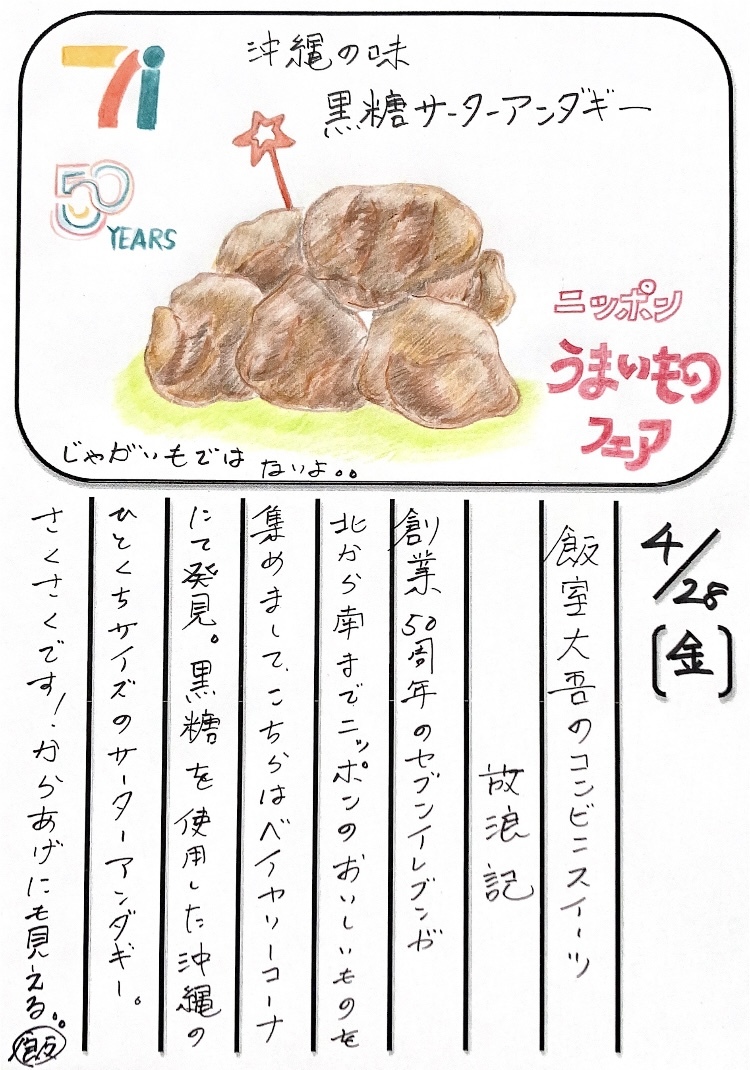 7i
50
YEARS
沖縄の味
黒糖サーターアンダギー
ニッポン
うまいもの
フェア
じゃがいもではないよ。。
4/28
(金)
飯室大吾のコンビニスイーツ
放浪記
創業50周年のセブンイレブンが
北から南までニッポンのおいしいものを
集めまして、こちらはベイカリーコーナ
にて発見。黒糖を使用した沖縄の
ひとくちサイズのサーターアンダギー。
さくさくです!からあげにも見える。。
飯